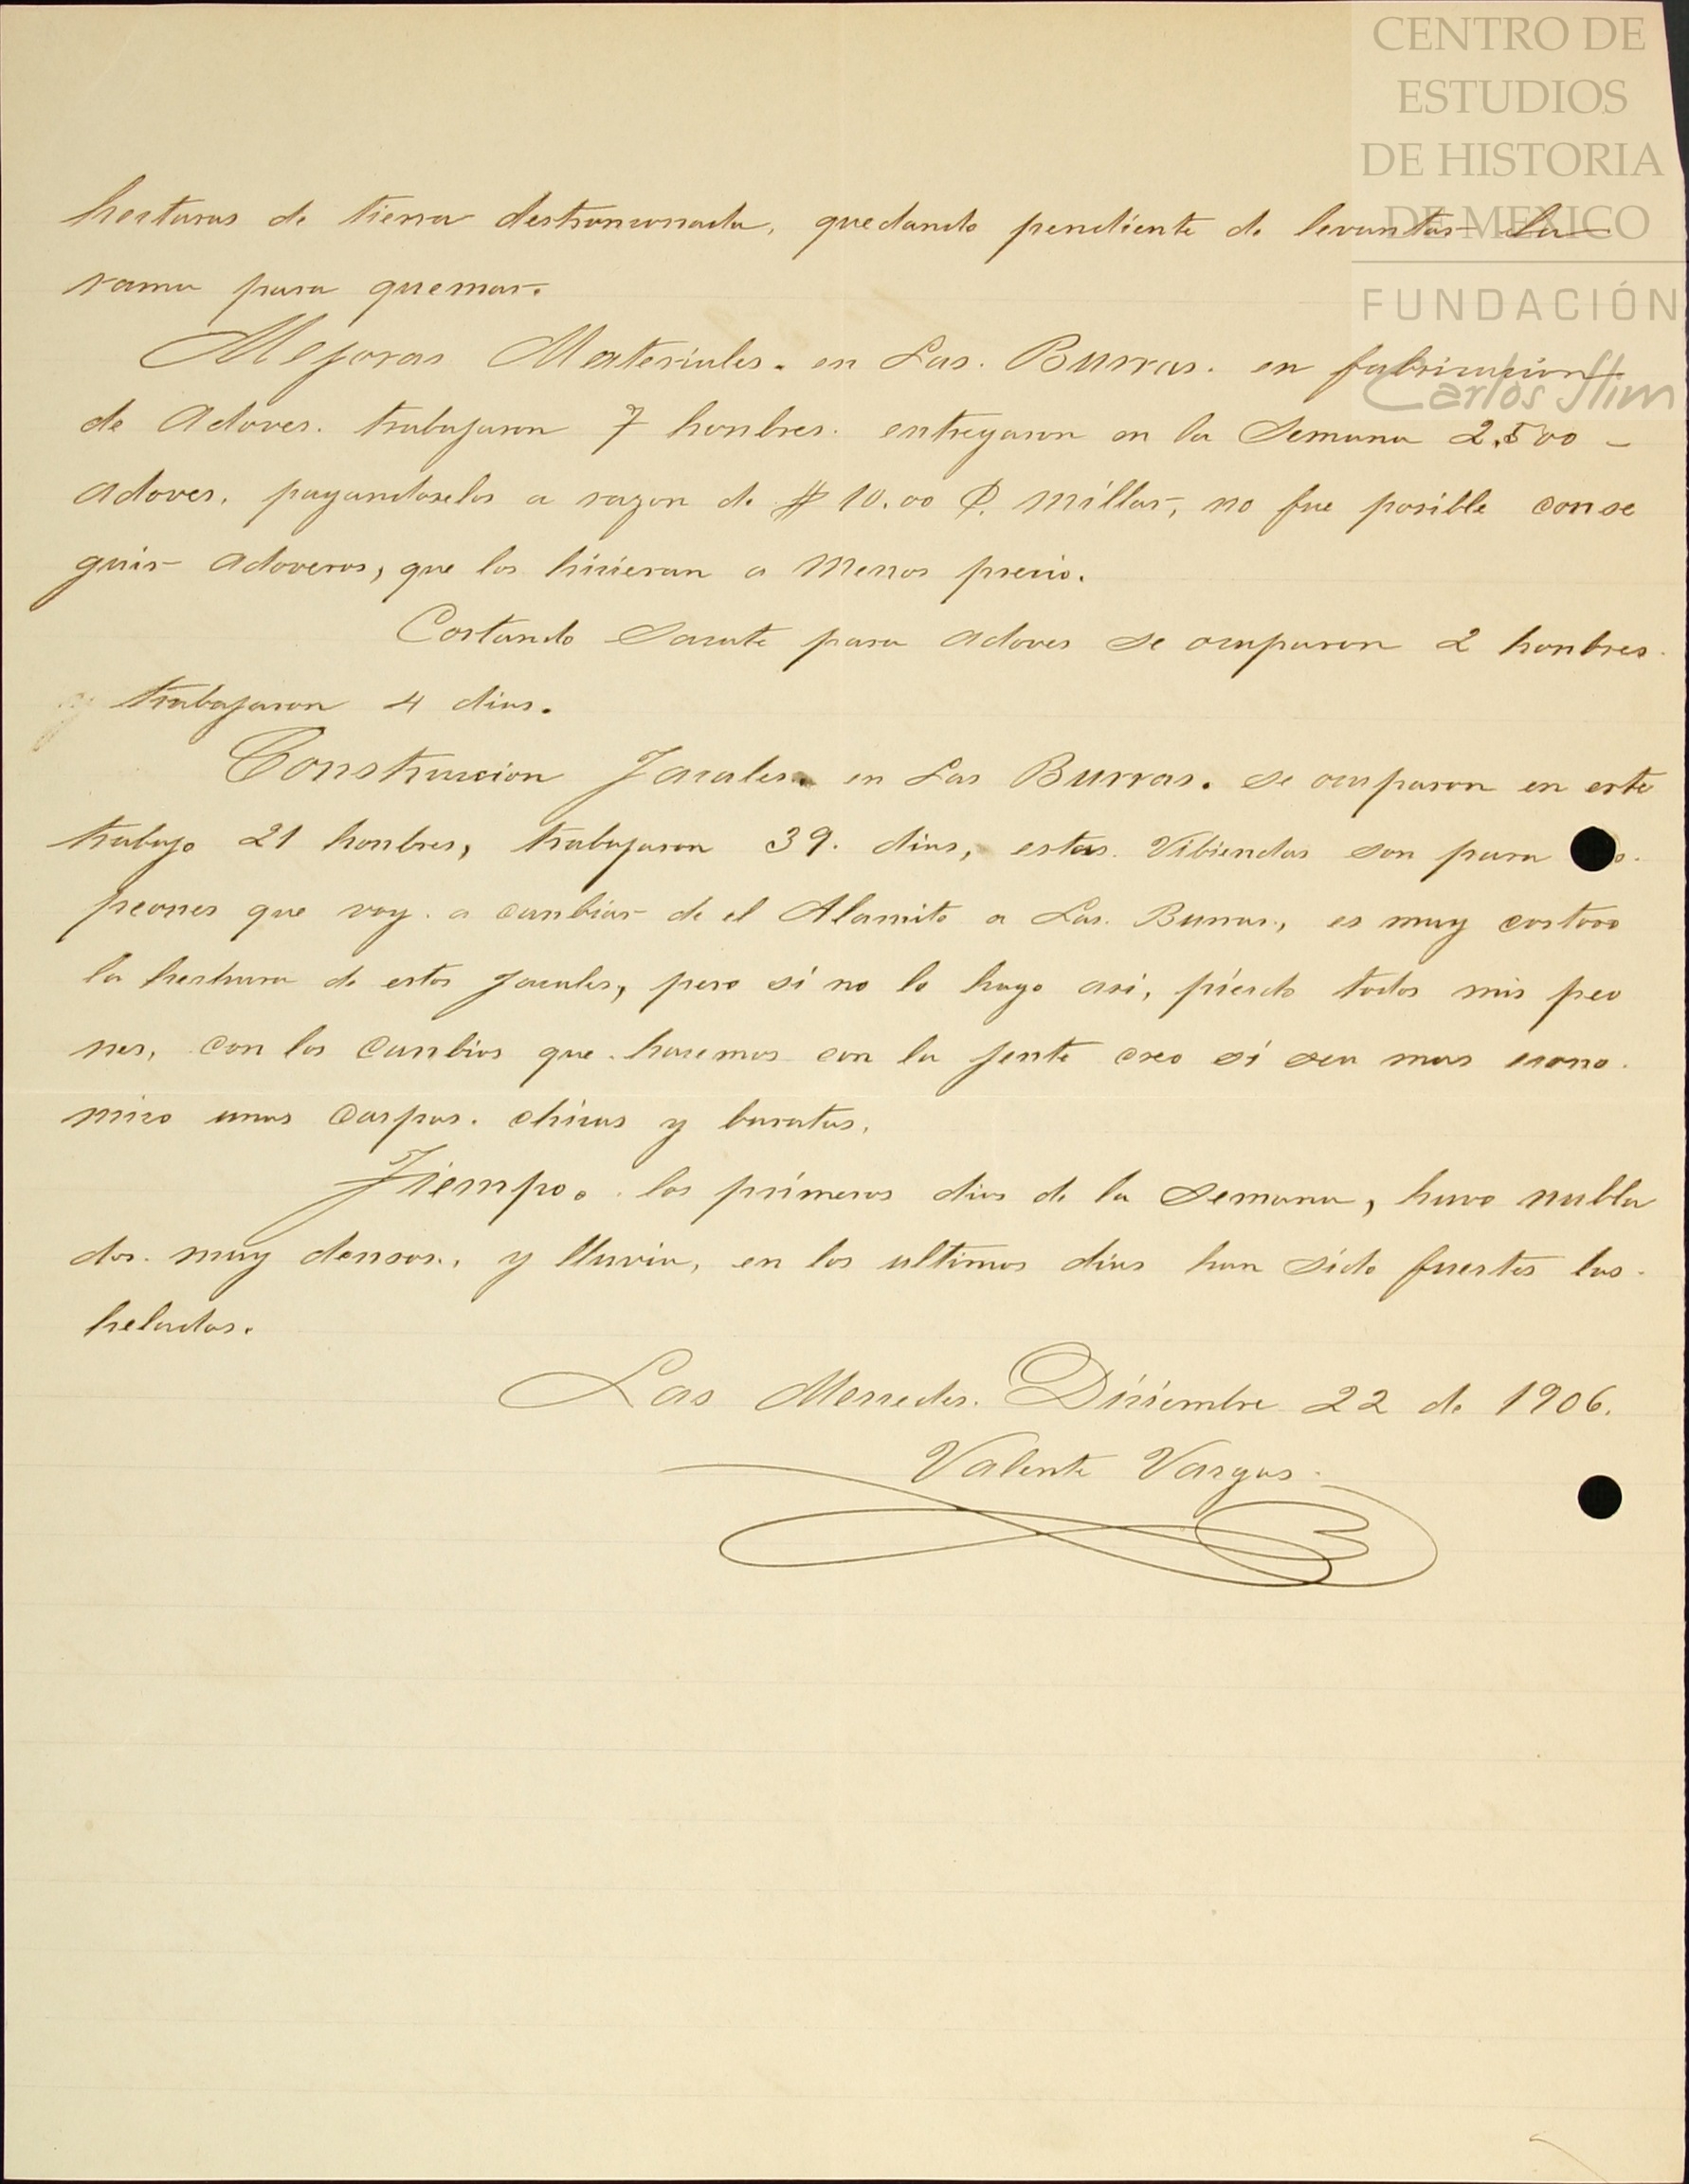 CENTRO DE
ESTUDIOS
DE HISTORIA
DE MEXICO
FUNDACIÓN
Carlos Slim
hectaras de tierra destronconada, quedando pendiente de levantar la
rama para quemar.
Mejoras Materiales. en Las. Burras. en fabricacion
de Adoves. trabajaron 7 honbres. entregaron en la Semana 2,500 -
adoves, pagandoselos a razon de $10.00 P. millar, no fue posible conse
guir adoveros, que los hicieran a menos precio.
Cortando Sacate para adoves se ocuparon 2 honbres.
y trabajaron 4 dias.
Construccion Jacales. en Las Burras. se ocuparon en este
trabajo 21 honbres, trabajaron 39. dias, estas. Vibiendas son para
peones que voy. a canbiar de el Alamito a Las. Burras., es muy costoso
la hechura de estos jacales, pero si no lo hago asi, pierdo todos mis peo
nes, con los canbios que. hacemos con la jente creo si sea mas econo.
mico unas carpas. chicas y baratas.
Tiempo. los primeros dias de la semana, huvo nubla
dos. muy densos., y lluvia, en los ultimos dias han sido fuertes las.
heladas.
Las Mercedes. Diciembre 22 de 1906.
Valente Vargas.